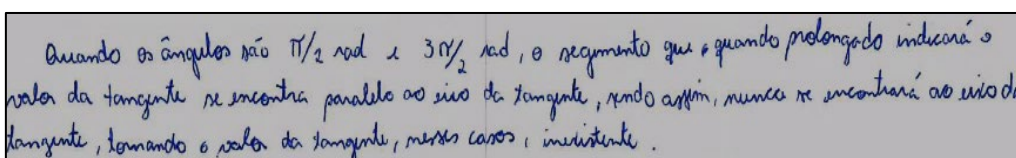 Quando os ângulos são π/2 rad e 3π/2 rad, o segmento que, quando prolongado indicará o
valor da tangente se encontra paralelo ao eixo da tangente, sendo assim, nunca se encontrará ao eixo da
tangente, tornando o valor da tangente, nesses casos, inexistente.